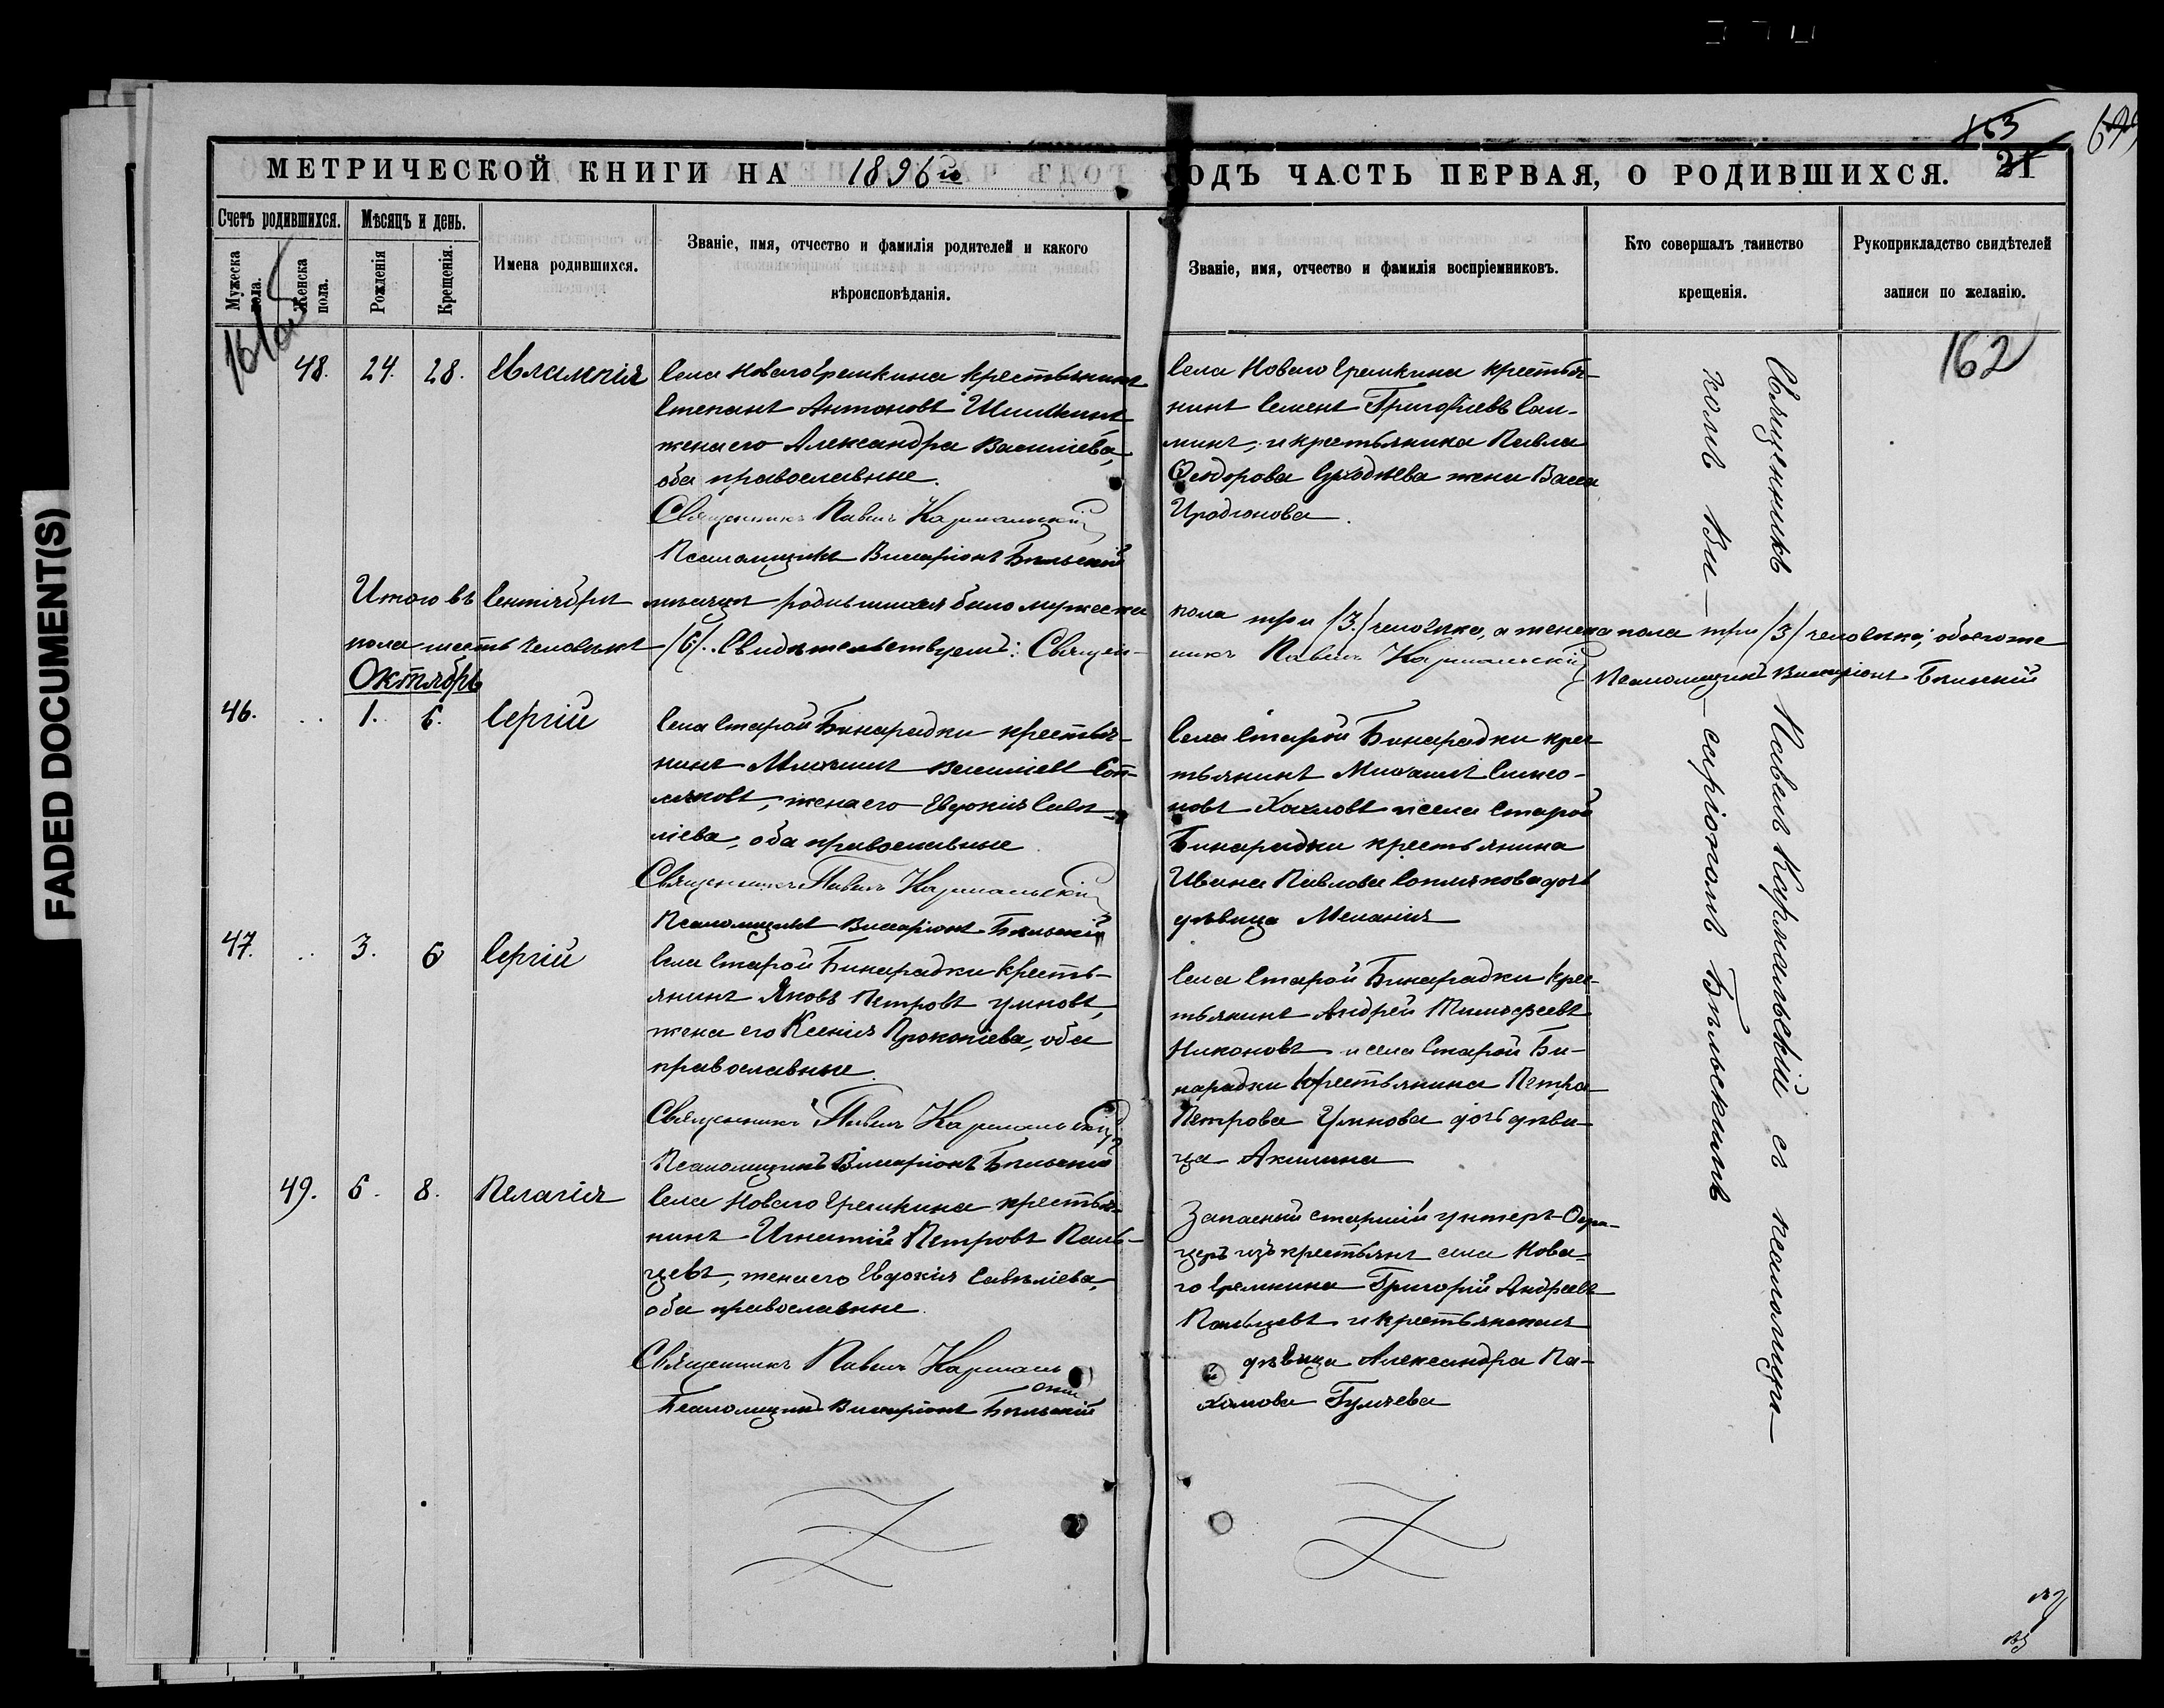 FADED DOCUMENT(S)
163
МЕТРИЧЕСКОЙ КНИГИ НА 1896й ГОДЪ ЧАСТЬ ПЕРВАЯ, О РОДИВШИХСЯ. 21
Счетъ родившихся.
Мужеска пола.
Женска пола.
Мѣсяцъ и день.
Рожденія
Крещенія.
Имена родившихся.
Званіе, имя, отчество и фамилія родителей и какого
вѣроисповѣданія.
Званіе, имя, отчество и фамилія воспріемниковъ.
Кто совершалъ таинство
крещенія.
Рукоприкладство свидѣтелей
записи по желанію.
162
48. 24. 28. Евлампія
Села Новаго Еремкина крестьянинъ
Степанъ Антоновъ Шишкинъ
жена его Александра Василіева,
оба православные.
Священникъ Павелъ Кармальскій
Псаломщикъ Виссаріонъ Бѣльскій
Села Новаго Еремкина крестья-
нинъ Семенъ Григорьевъ Сал-
минъ, и крестьянина Павла
Ѳеодорова жена Васса
Иродіонова.
Священникъ Павелъ Кармальскій съ псаломщи-
комъ Вис-
саріономъ Бѣльскимъ
Итого въ Сентябрѣ мѣсяцѣ родившихся было мужеска пола три /3/ человѣка, а женска пола три /3/ человѣка, обоего же
пола шесть человѣкъ /6/. Свидѣтельствуемъ: Священ-
никъ Павелъ Кармальскій
Псаломщикъ Виссаріонъ Бѣльскій
Октябрь
46. .. 1. 6. Сергій
Села Старой Бинарадки крестья-
нинъ Михаилъ Василіевъ Соп-
ляковъ, жена его Евдокія Савѣ-
ліева, оба православные
Священникъ Павелъ Кармальскій
Псаломщикъ Виссаріонъ Бѣльскій
Села Старой Бинарадки крес
тьянинъ Михаилъ Симео-
новъ Хохловъ и села Старой
Бинарадки крестьянина
Ивана Павлова Соплякова дочь
дѣвица Меланія
47. .. 3. 6 Сергій
Села Старой Бинарадки кресть-
янинъ Яковъ Петровъ Умновъ,
жена его Ксенія Прокопіева, оба
православные.
Священникъ Павелъ Кармальскій
Псаломщикъ Виссаріонъ Бѣльскій
Села Старой Бинарадки крес-
тьянинъ Андрей Тимоѳеевъ
Никоновъ и села Старой Би-
нарадки крестьянина Петра
Петрова Умнова дочь дѣви-
ца Акилина
49. 6. 8. Пелагія
Села Новаго Еремкина крестья-
нинъ Игнатій Петровъ Паль-
цевъ, жена его Евдокія Савѣліева,
оба православные.
Священникъ Павелъ Кармаль
скій
Псаломщикъ Виссаріонъ Бѣльскій
Запасный старшій унтеръ-Офи-
церъ изъ крестьянъ села Нова-
го Еремкина Григорій Андреевъ
Пальцевъ и крестьянская
дѣвица Александра Па-
хомова Гуляева